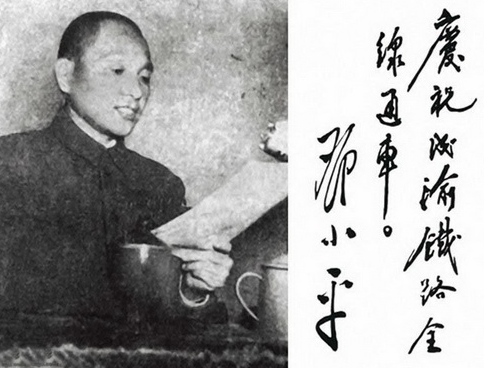 慶祝成渝鐵路全
線通車。
鄧小平